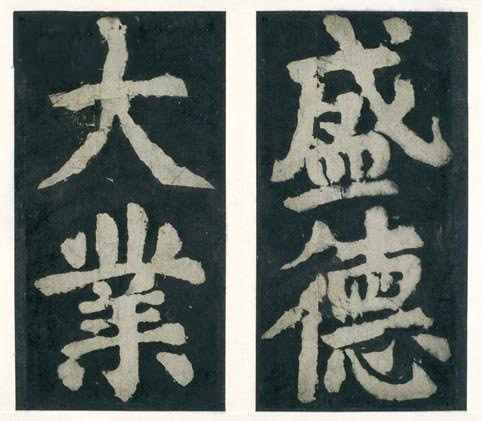 盛德
大業